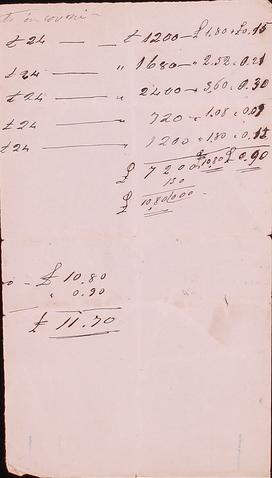 £ 24 — £ 1200 — £ 1,80 £0.15
£ 24 — " 1680 — " 2.52 " 0.21
£ 24 — " 2400 — " 3,60 " 0.30
£ 24 — " 720 " 1.08 " 0.09
£ 24 — 1200 " 1,80 " 0.15
£ 7200 £ 10,80 £ 0.90
150
£ 10,80,000
£ 10.80
" 0.90
£ 11.70